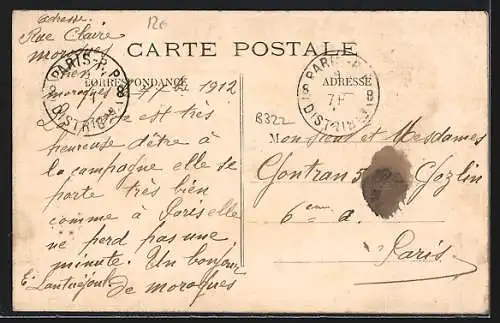 adresse.
Rue Claire
moroques
12e
CARTE POSTALE
CORRESPONDANCE
ADRESSE
PARIS-R.P.
DISTRIBon
PARIS-R.P.
DISTRIB
moroques
1912
B322
est très
heureuse d'être à
la campagne elle se
porte très bien
comme à Paris elle
ne perd pas une
minute. Un bonjour
E. Lantuéjoul de moroques
Monsieur et Mesdames
Gontran 5 rue Gozlin
6eme a.
Paris